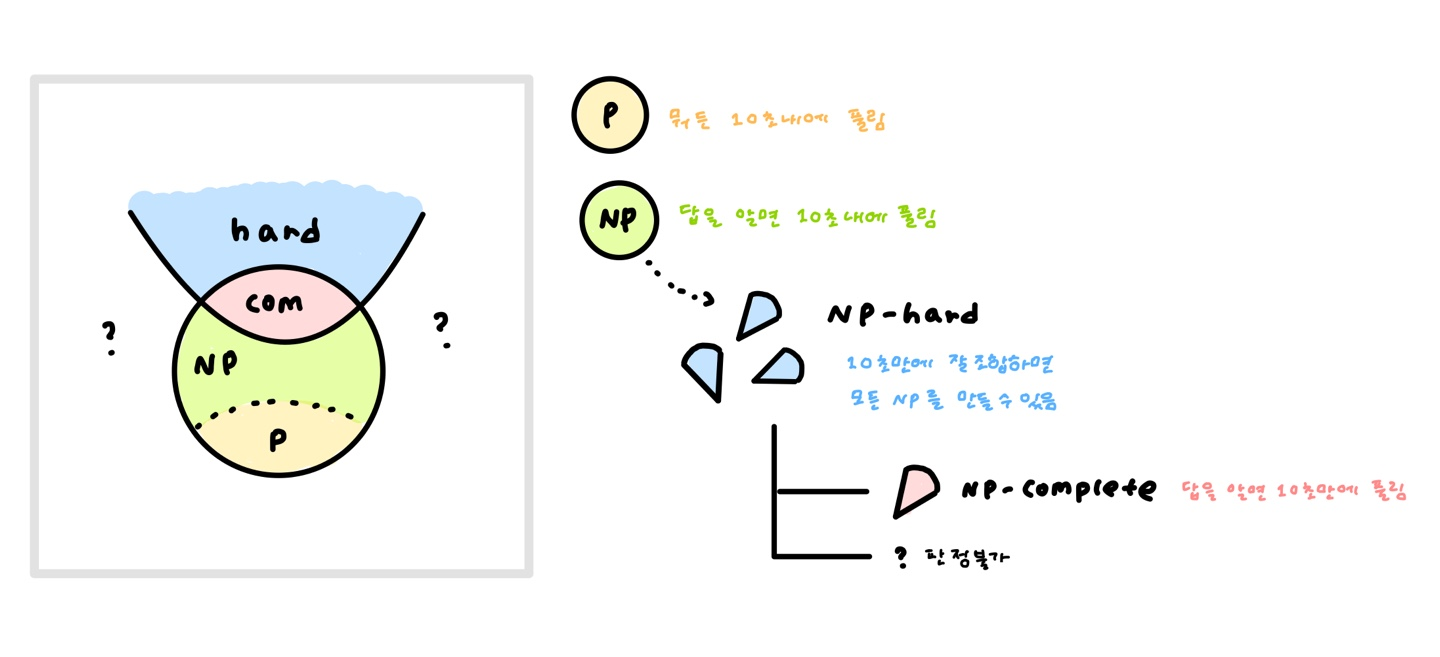 hard
com
?
?
NP
P
P 뭐든 10초내에 풀림
NP 답을 알면 10초내에 풀림
NP-hard
10초만에 잘 조합하면
모든 NP를 만들 수 있음
NP-complete 답을 알면 10초만에 풀림
? 판정불가